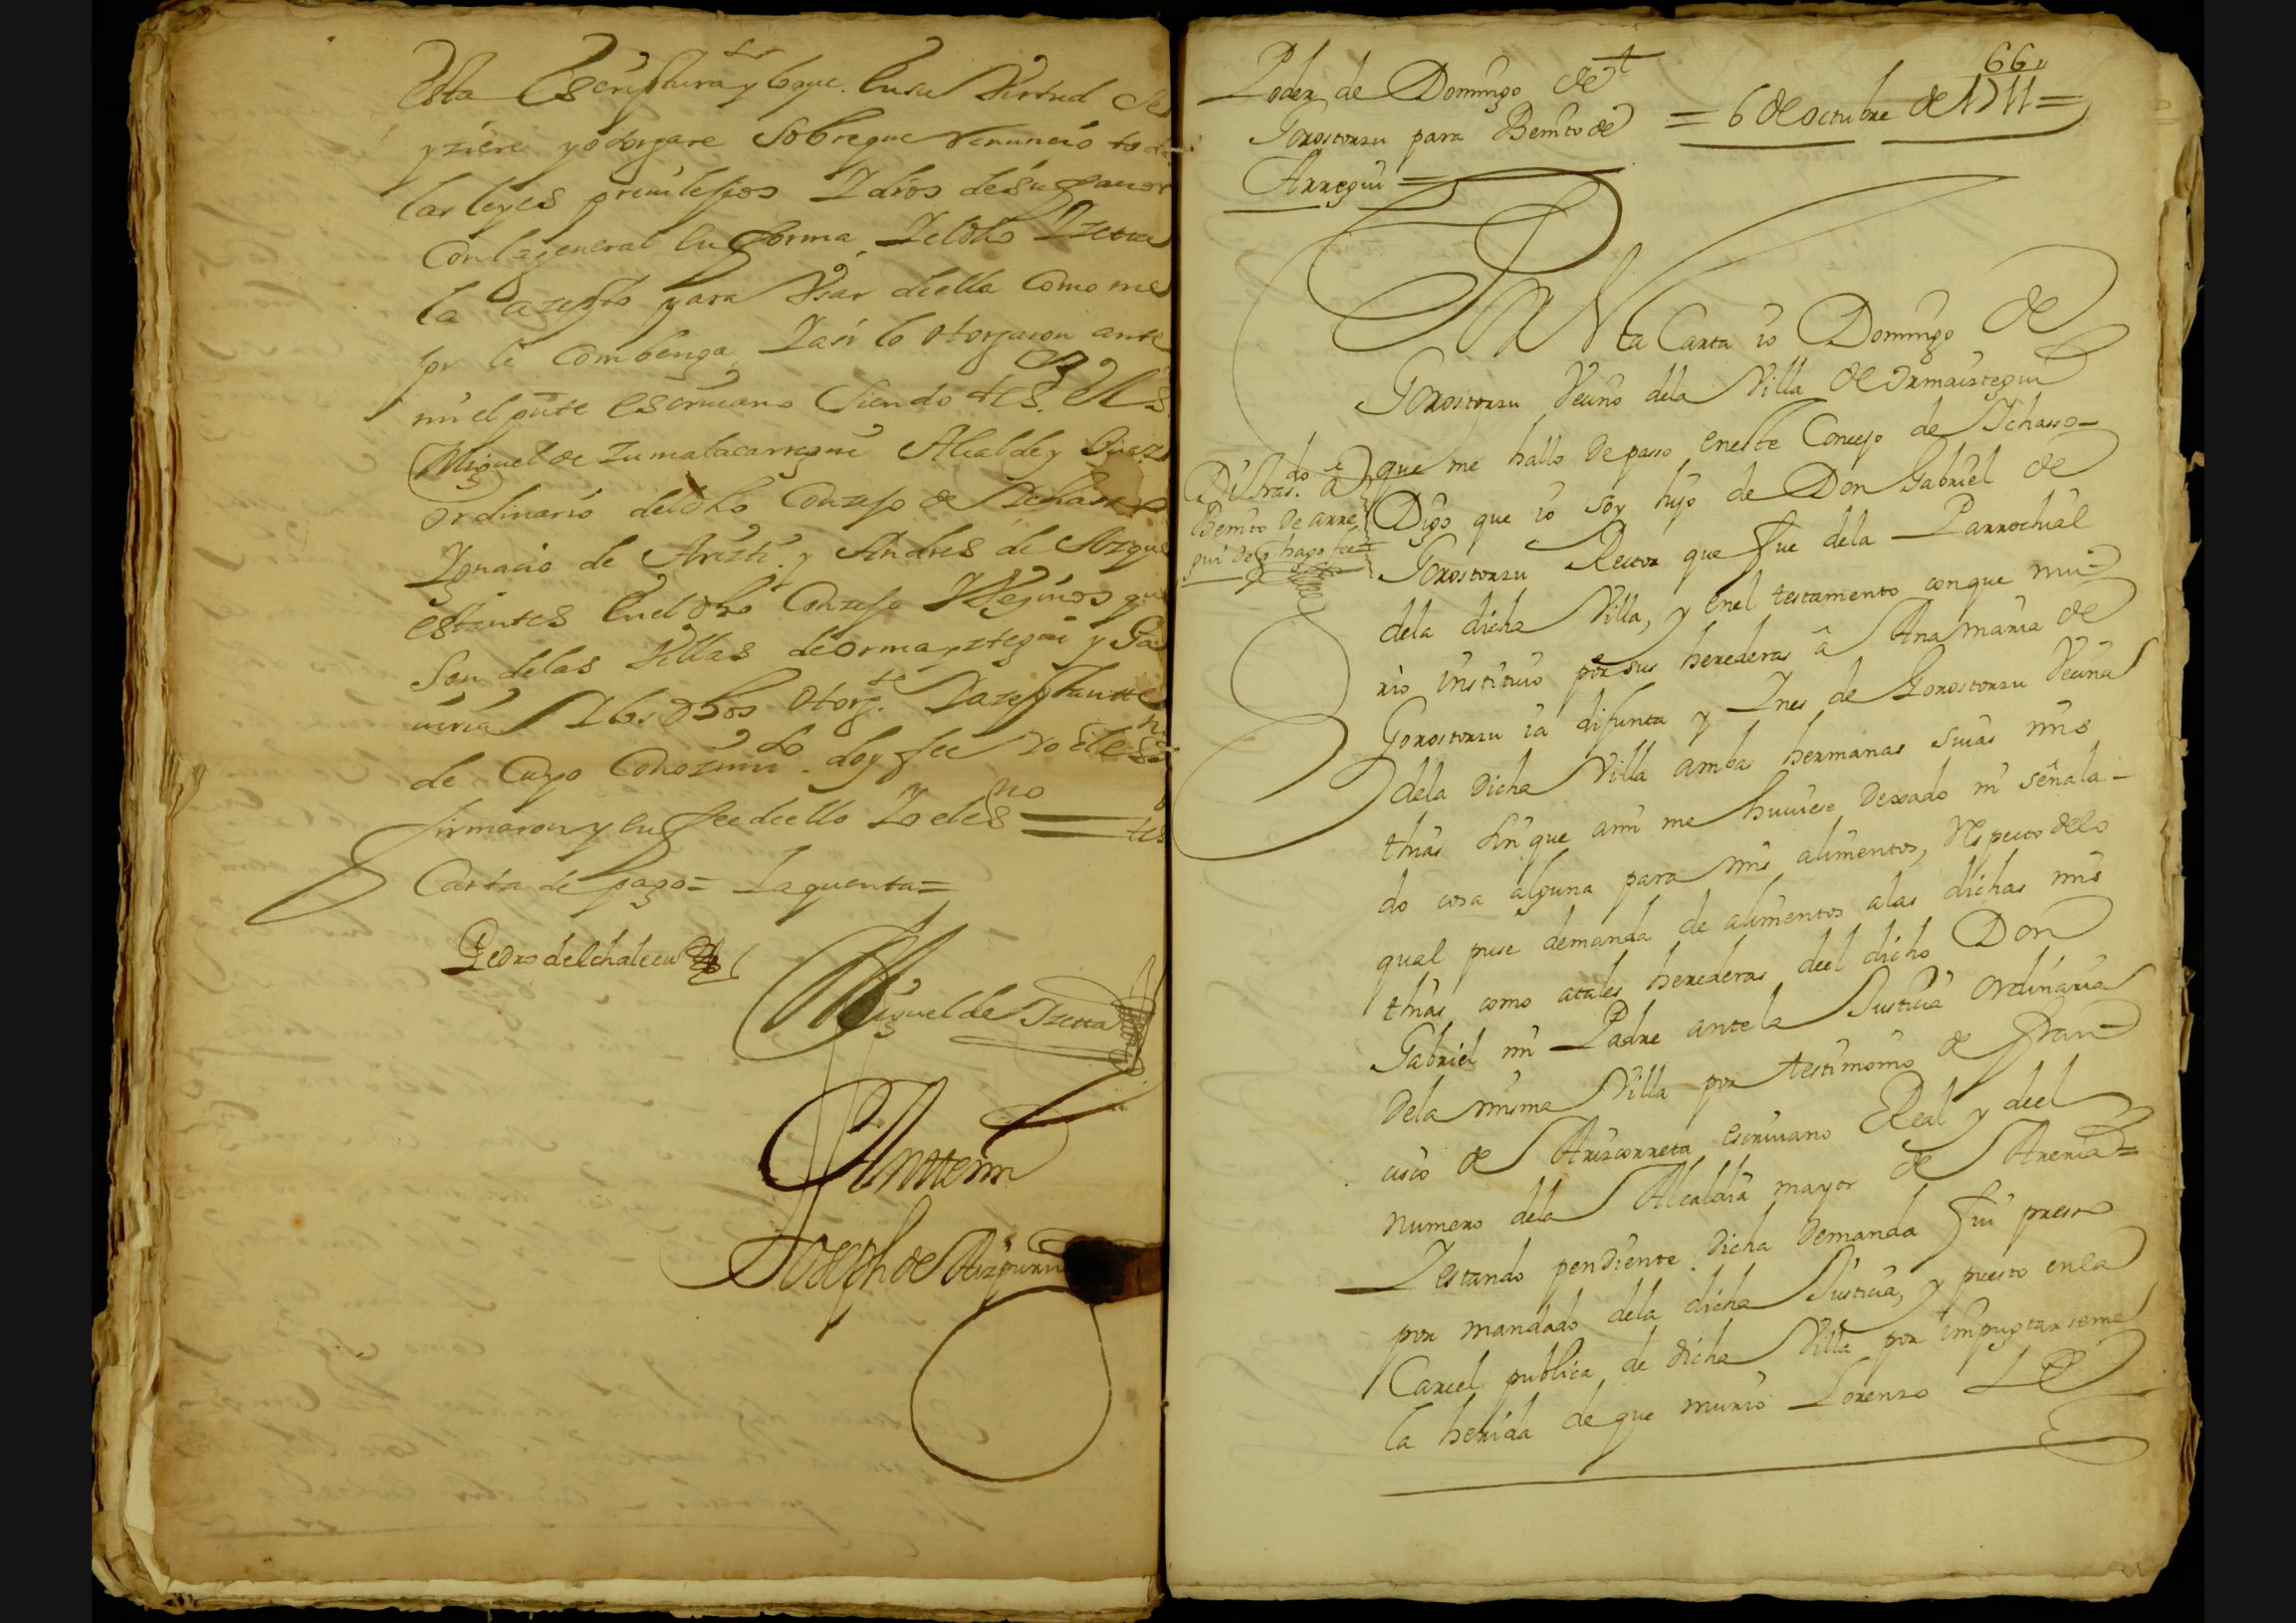 esta escriptura y loque. en su Virtud se
yziere y otorgare sobreque renuncio todas
las leyes preuilesios Y dros de su fauor
con la general en forma, Y el dho Yzetta
la azepto para Vsar de ella como me
jor le combenga, Y asi lo otorgaron ante
mi el pnte escriuano siendo tes.
Miguel de Zumalacarregui Alcalde y Juez
ordinario del dho Conzejo de Ychasso
Ygnacio de Arizti. y Andres de
estantes en el dho Conzejo Y Vezinos que
son de las Villas de ormayztegui y Ga
uiria Y los dhos otorg.te Y azeptante
de cuyo conozimi.to doy fee Yo el es.no
firmaron y en fee de ello Yo el es.no = tes
Carta de pago = Y aquenta =
Pedro de elchaleeu
Miguel de Yzetta
Antemi
Joseph de Aizpuru
66
Poder de Domingo de
Gorostorzu para Benito de = 6 de octubre de 1711 =
Arregui =
En esta Carta io Domingo de
Gorostorzu Vecino dela Villa de Ormaiztegui
que me hallo de passo en este Concejo de Ichasso
Di tras.do a
Benito de arre
gui de q hago fee =
Digo que io soy hijo de Don Gabriel de
Gorostorzu Rector que fue dela Parrochial
dela dicha Villa, y enel testamento conque mu=
rio instituio por sus herederas â Ana maria de
Gorostorzu ia difunta y Ines de Gorostorzu Vecina
dela dicha Villa ambas hermanas suias mis
thias sin que ami me huuiese dexado ni señala-
do cosa alguna para mis alimentos, Respecto delo
qual puse demanda de alimentos alas dichas mis
thias como atales herederas deel dicho Don
Gabriel mi Padre antela Justicia Ordinaria
dela misma Villa por testimonio de Fran=
cisco de Arizcorreta escriuano Real y deel
numero dela Alcaldia mayor de Areria=
Y estando pendiente dicha demanda fui preso
por mandado dela dicha Justicia, y puesto enla
Carcel publica de dicha Villa por imputarseme
la herida de que murio Lorenzo de